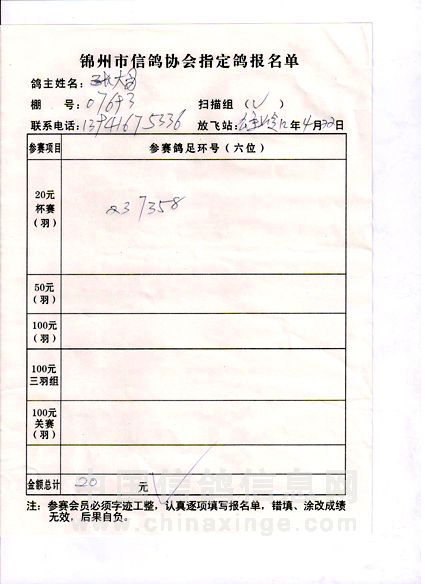 锦州市信鸽协会指定鸽报名单
鸽主姓名:
棚 号: 07643 扫描组 (√)
联系电话: 13941675336 放飞站: 12年4月22日
参赛项目 参赛鸽足环号(六位)
20元
杯赛
(羽)
237358
50元
(羽)
100元
(羽)
100元
三羽组
100元
关赛
(羽)
金额总计 20 元
注: 参赛会员必须字迹工整, 认真逐项填写报名单, 错填、涂改成绩
无效, 后果自负。
中国信鸽信息网
www.chinaxinge.com